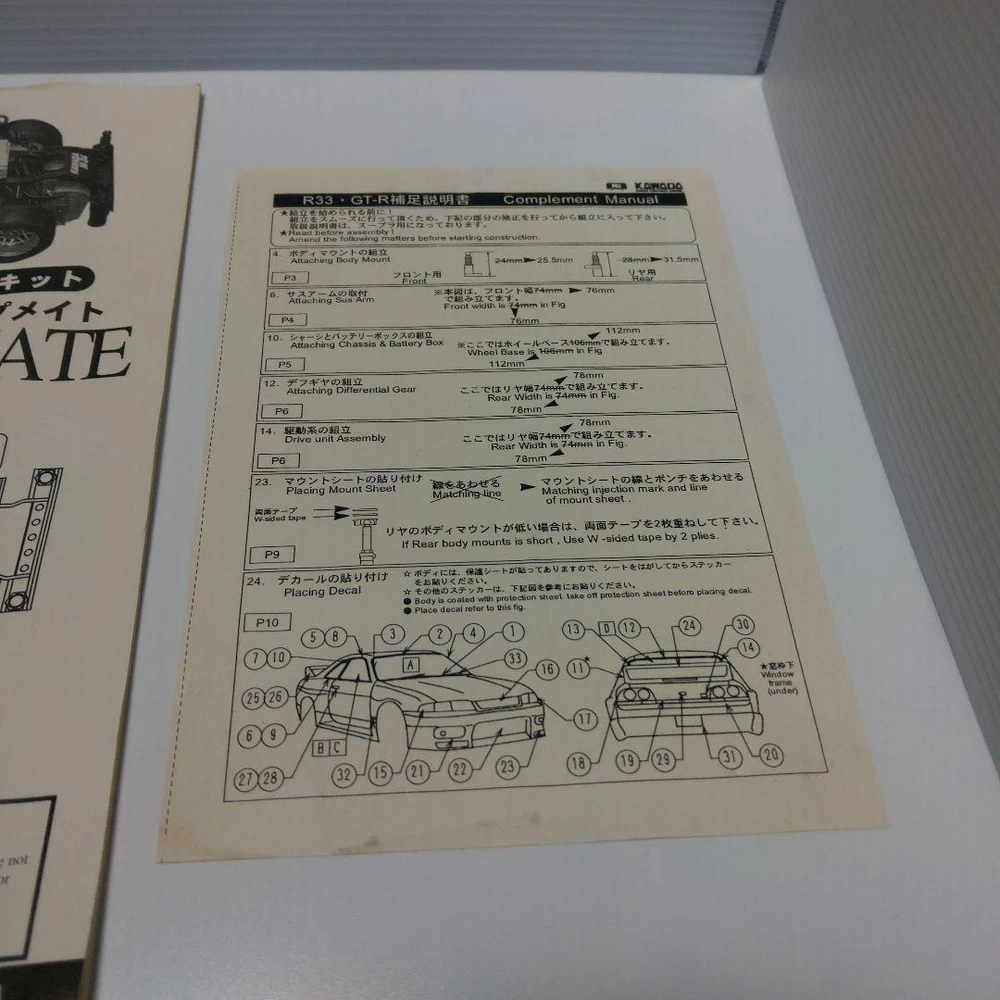 キット
プメイト
ATE
e not
or
KAWADA
R33・GT-R補足説明書 Complement Manual
★組立を始められる前に！
組立をスムーズに行って頂くため、下記の部分の修正を行ってから組立に入って下さい。
取扱説明書は、スープラ用になっております。
★Read before assembly!
Amend the following matters before starting construction.
4. ボディマウントの組立
Attaching Body Mount
P3
フロント用
Front
24mm ▶ 25.5mm
28mm ▶ 31.5mm
リヤ用
Rear
6. サスアームの取付
Attaching Sus Arm
P4
※本図は、フロント幅74mm ▶ 76mm
で組み立てます。
Front width is 74mm in Fig
76mm
10. シャーシとバッテリーボックスの組立
Attaching Chassis & Battery Box
P5
112mm
※ここではホイールベース106mmで組み立てます。
Wheel Base is 106mm in Fig
112mm
12. デフギヤの組立
Attaching Differential Gear
P6
78mm
ここではリヤ幅74mmで組み立てます。
Rear Width is 74mm in Fig.
78mm
14. 駆動系の組立
Drive unit Assembly
P6
78mm
ここではリヤ幅74mmで組み立てます。
Rear Width is 74mm in Fig.
78mm
23. マウントシートの貼り付け
Placing Mount Sheet
線をあわせる
Matching line
▶ マウントシートの線とポンチをあわせる
Matching injection mark and line
of mount sheet.
両面テープ
W-sided tape
P9
リヤのボディマウントが低い場合は、両面テープを2枚重ねして下さい。
If Rear body mounts is short, Use W-sided tape by 2 plies.
24. デカールの貼り付け
Placing Decal
P10
☆ ボディには、保護シートが貼ってありますので、シートをはがしてからステッカー
をお貼りください。
☆ その他のステッカーは、下記図を参考にお貼りください。
● Body is coated with protection sheet. take off protection sheet before placing decal.
● Place decal refer to this fig.
5 8 3 2 4 1
7 10 A 33 16
25 26 17
6 9 B C
27 28 32 15 21 22 23
13 D 12 24 30
11* 14
★窓枠下
Window
frame
(under)
18 19 29 31 20